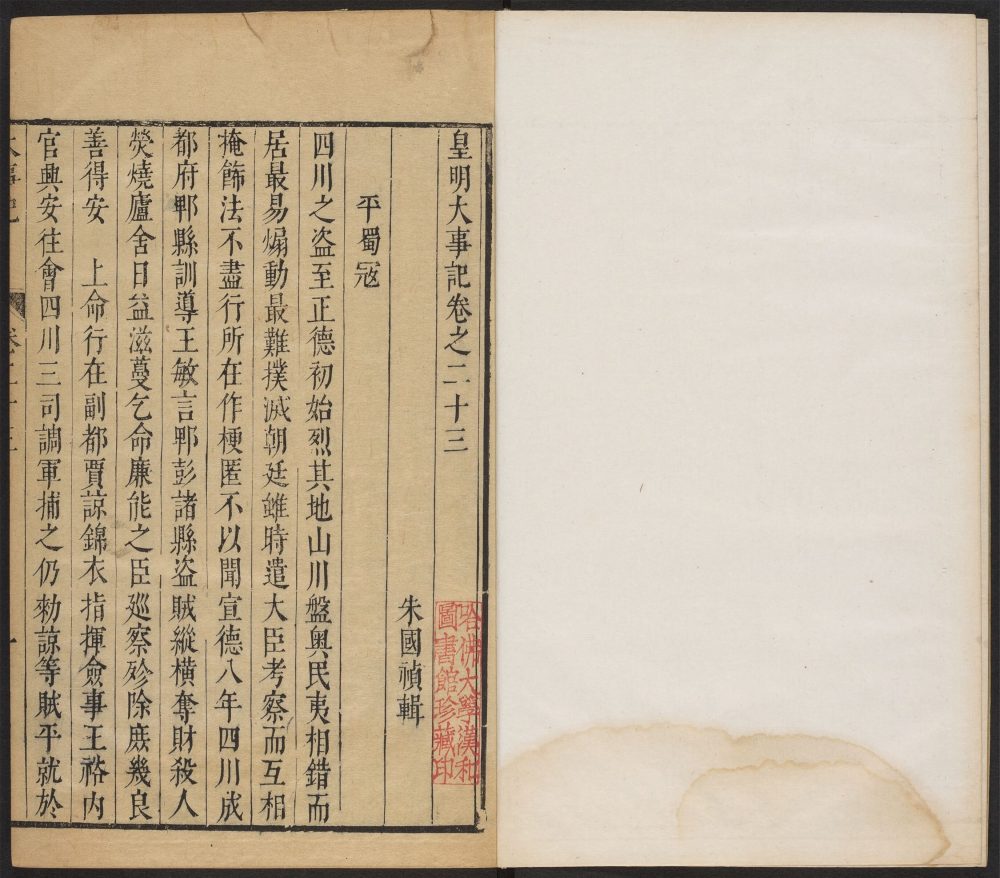 皇明大事記卷之二十三
朱國禎輯
平蜀冦
四川之盗至正德初始烈其地山川盤奧民夷相錯而
居最易煽動最難撲滅朝廷雖時遣大臣考察而互相
掩飾法不盡行所在作梗匿不以聞宣德八年四川成
都府郫縣訓導王敏言郫彭諸縣盗賊縱横奪財殺人
焚燒廬舍日益滋蔓乞命廉能之臣廵察殄除庻幾良
善得安　上命行在副都賈諒錦衣指揮僉事王裕内
官興安往會四川三司調軍捕之仍勑諒等賊平就於
哈佛大學漢和
圖書館珍藏印